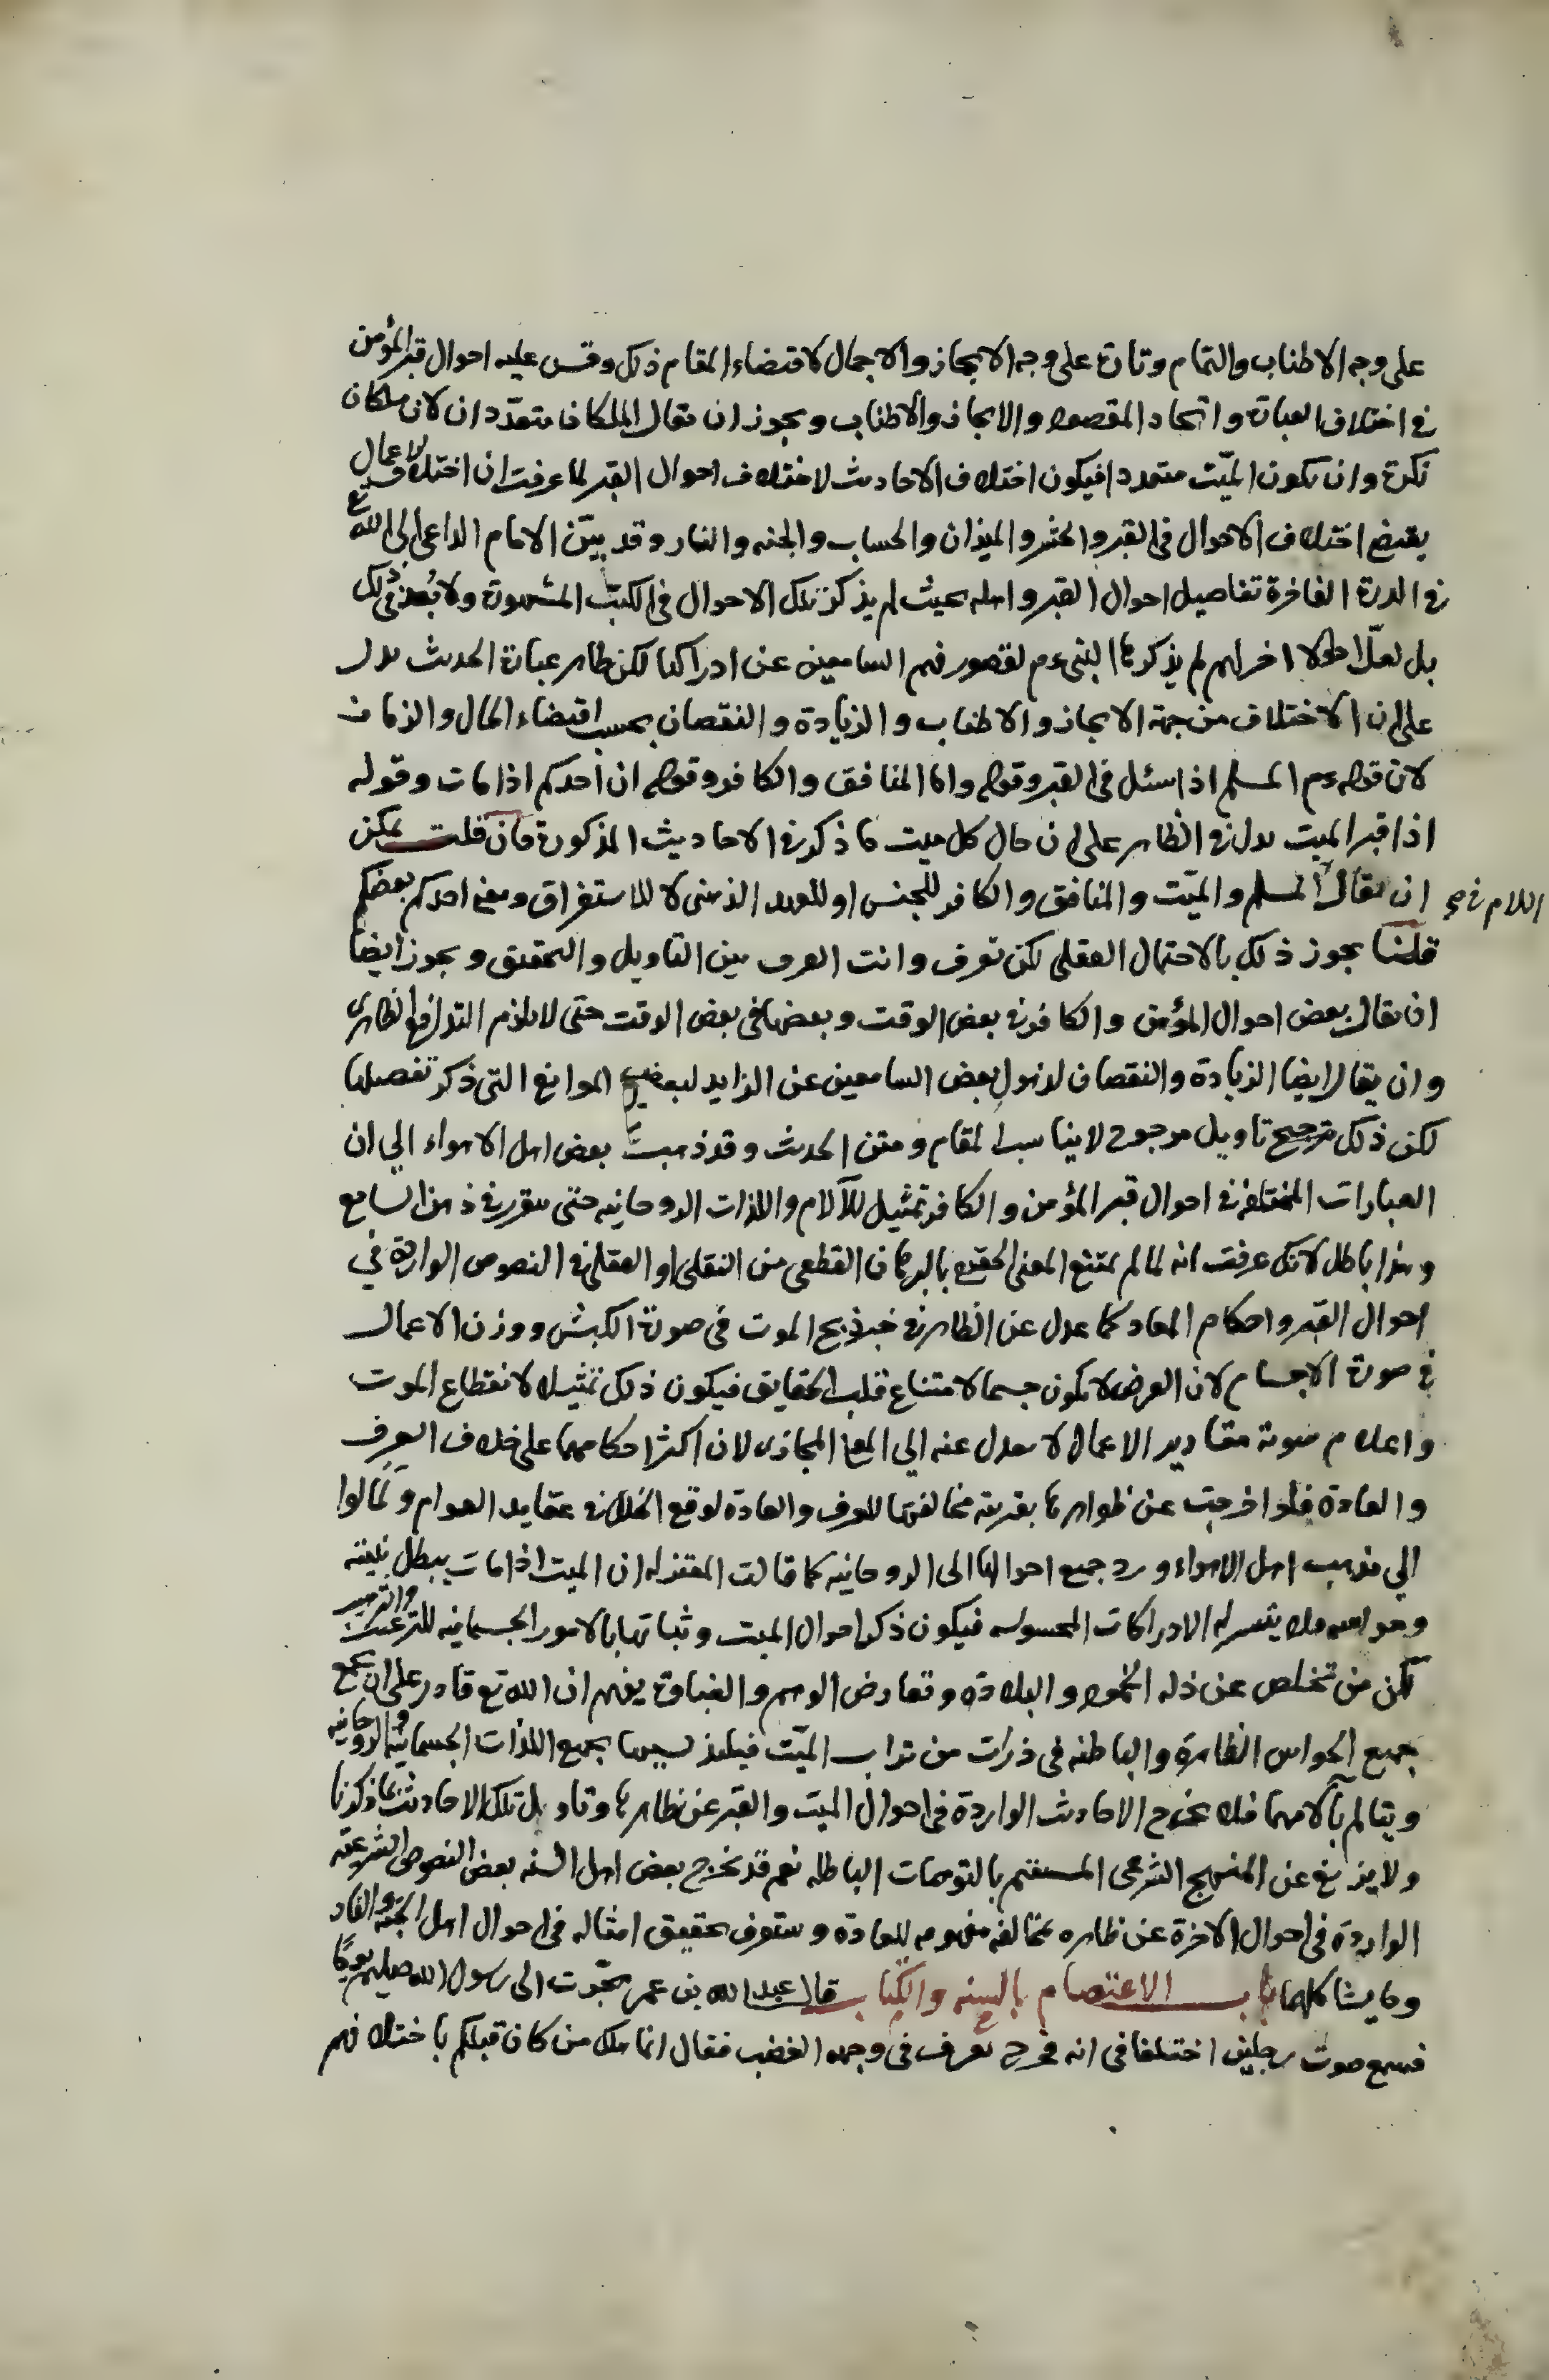 على وجه الاطناب والتمام وتارة على وجه الايجاز والاجمال لاقتضاء المقام ذلك وقس عليه احوال قبر المؤمن
في اختلاف العبارة واتحاد المقصود والايجاز والاطناب ويجوز ان يقال الملكان متعددان لان ملكان
نكرة وان يكون الميّت متعددا فيكون اختلاف الاحاديث لاختلاف احوال القبر لما عرفت ان اختلاف الاعمال
يقتضي اختلاف الاحوال في القبر والحشر والميزان والحساب والجنه والنار وقد بيّن الامام الداعي الى الله تع
في الدرة الفاخرة تفاصيل احوال القبر واهله بحيث لم يذكر تلك الاحوال في الكتب المشهورة ولا بُعد في ذلك
بل لعلّ احوالا اخر لهم لم يذكرها النبي ءم لقصور فهم السامعين عن ادراكها لكن ظاهر عبارة الحديث يدل
على ان الاختلاف من جهة الايجاز والاطناب والزيادة والنقصان بحسب اقتضاء الحال والزمان
لان قوله ءم المسلم اذا سئل في القبر وقوله واما المنافق والكافر وقوله ان احدكم اذا مات وقوله
اذا قبر الميت يدل في الظاهر على ان حال كل ميت ما ذكر في الاحاديث المذكورة فان قلت يمكن
ان يقال المسلم والميّت والمنافق والكافر للجنس او للعهد الذهنى لا للاستغراق ومعنى احدكم بعضكم
اللام في
قلنا يجوز ذلك بالاحتمال العقلى لكن تعرف وانت الفرق بين التاويل والتحقيق ويجوز ايضا
ان يقال بعض احوال المؤمن والكافر في بعض الوقت وبعضها في بعض الوقت حتى لا يلزم التدافع الظاهرى
وان يقال ايضا الزيادة والنقصان لذهول بعض السامعين عن الزايد لبعض الموانع التي ذكر تفصيلها
لكن ذلك ترجيح تاويل مرجوح لا يناسب المقام ومتن الحديث وقد ذهبت بعض اهل الاهواء الي ان
العبارات المختلفة في احوال قبر المؤمن والكافر تمثيل للآلام واللذات الروحانيه حتى يتقرر في ذهن السامع
وهذا باطل لانك عرفت انه لما لم يمتنع المعنى الحقيقي بالبرهان القطعي من النقلى او العقلى في النصوص الواردة في
احوال القبر واحكام المعاد كما عدل عن الظاهر في خبر ذبح الموت في صورة الكبش ووزن الاعمال
في صورة الاجسام لان العرض لا يكون جسما لامتناع قلب الحقايق فيكون ذلك تمثيلا لانقطاع الموت
واعلام مقادير الاعمال لا يعدل عنه الي المعنى المجازى لان اكثر احكامهما على خلاف العرف
والعادة فلو اخرجت عن ظواهرها بقرينة مخالفتها للعرف والعادة لوقع الخلل في عقايد العوام ولمالوا
الي مذهب اهل الاهواء ورد جميع احوالها الى الروحانيه كما قالت المعتزله ان الميت اذا مات يبطل بنيته
وحواسه فلا يتيسر له الادراكات المحسوسه فيكون ذكر احوال الميت وثباتها بالامور الجسمانيه للترغيب والترهيب
لكن من تخلص عن ذله الخمود والبلادة وتعارض الوهم والغباوة يفهم ان الله تع قادر على ان يجمع
جميع الحواس الظاهرة والباطنه في ذرات من تراب الميّت فيلذ بسببها بجميع اللذات الجسمانيه والروحانيه
ويتالم بآلامهما فلا نخرج الاحاديث الواردة في احوال الميت والقبر عن ظاهرها وتاويل تلك الاحاديث بما ذكرنا
ولا يزيغ عن المنهج الشرعى المستقيم بالتوهمات الباطله نعم قد تخرج بعض اهل السنه بعض النصوص الشرعيّه
الواردة في احوال الاخرة عن ظاهره لمخالفه مفهومه للعادة وستعرف تحقيق امثاله في احوال اهل الجنّه والنار
وما يشاكلهما باب الاعتصام بالسنه والكتاب قال عبد الله بن عمر هجّرت الى رسول الله صليه م يومًا
فسمع صوت رجلين اختلفا في آية فخرج يعرف في وجهه الغضب فقال انما هلك من كان قبلكم باختلافهم